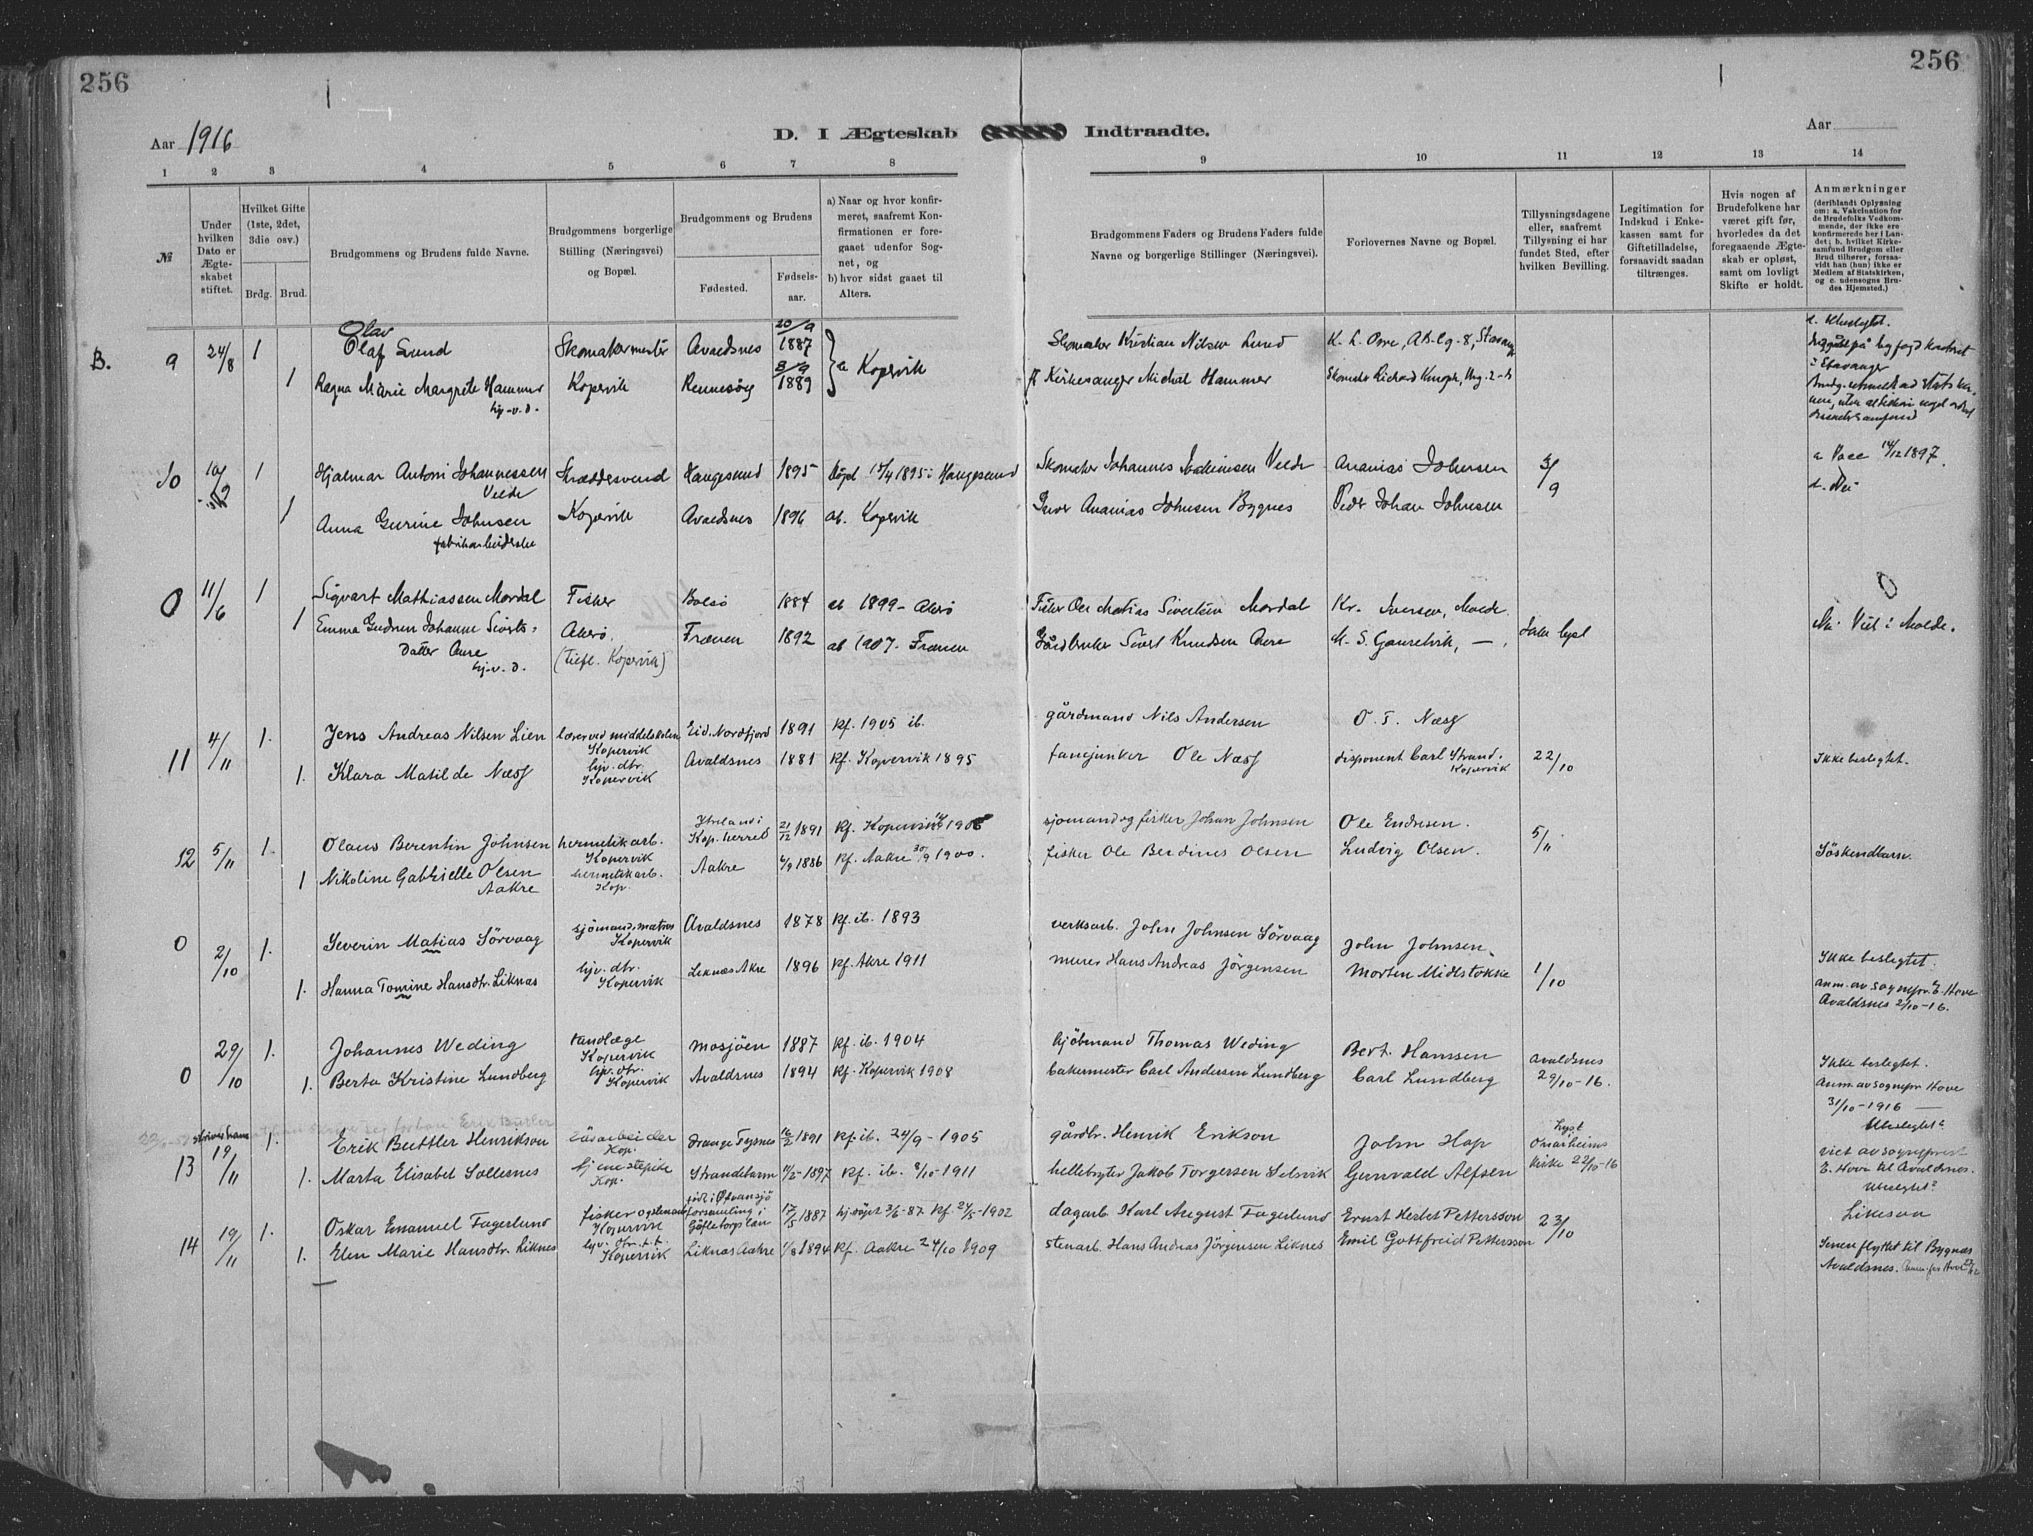 256
256
Aar 1916
D. I Ægteskab Indtraadte.
Aar
1 2 3 4 5 6 7 8 9 10 11 12 13 14
№
Under hvilken Dato er Ægteskabet stiftet.
Hvilket Gifte (1ste, 2det, 3die osv.)
Brdg. Brud.
Brudgommens og Brudens fulde Navne.
Brudgommens borgerlige Stilling (Næringsvei) og Bopæl.
Brudgommens og Brudens
Fødested. Fødselsaar.
a) Naar og hvor konfirmeret, saafremt Konfirmationen er foregaaet udenfor Sognet, og
b) hvor sidst gaaet til Alters.
Brudgommens Faders og Brudens Faders fulde Navne og borgerlige Stillinger (Næringsvei).
Forlovernes Navne og Bopæl.
Tillysningsdagene eller, saafremt Tillysning ei har fundet Sted, efter hvilken Bevilling.
Legitimation for Indskud i Enkekassen samt for Giftetilladelse, forsaavidt saadan tiltrænges.
Hvis nogen af Brudefolkene har været gift før, hvorledes da det foregaaende Ægteskab er opløst, samt om lovligt Skifte er holdt.
Anmærkninger
(deriblandt Oplysning om: a. Vakcination for de Brudefolks Vedkommende, der ikke ere konfirmerede her i Landet; b. hvilket Kirkesamfund Brudgom eller Brud tilhører, forsaavidt han (hun) ikke er Medlem af Statskirken, og c. udensogns Brudes Hjemsted.)
B. 9 24/8 1 Olav Olaf Lund Skomakermester Avaldsnes 20/9 1887 a Kopervik Skomaker Kristian Nilsen Lund
1 Ragna Marie Margrete Hammer hj.v.d. Kopervik Rennesøy 3/9 1889 Kirkesanger Michal Hammer
d. Ubeslegtet.
i Stavanger
10 10/9 1 Hjalmar Antoni Johannessen Velde Skræddersvend Haugesund 1895 Døpt 15/4 1895 i Haugesund Skomaker Johannes Joakimsen Velde Ananias Johnsen 3/9 a Vacc 14/12 1897.
1 Anna Gurine Johnsen fabrikarbeiderske Kopervik Avaldsnes 1896 ab. Kopervik Ananias Johnsen Bygnes Peder Johan Johnsen d. Nei
0 11/6 1 Sigvart Mathiassen Mordal Fisker Bolsø 1884 ab 1899 - Akerø Fisker Ole Matias Sivertsen Mordal Kr. Iversen, Molde 0
1 Emma Gudrun Johanne Siverts- datter Aure hj.v.d. Akerø. (tilfl. Kopervik) Frænen 1892 ab 1907. Frænen Gårdbruker Sivert Knudsen Aure Ikke lyst An. Viet i Molde.
11 4/11 1. Jens Andreas Nilsen Lien lærer ved middelskolen Kopervik Eid. Nordfjord 1891 kf. 1905 ib. gårdmand Nils Andersen O. T. Næss
1. Klara Matilde Næss hjv. dtr. Kopervik Avaldsnes 1881 kf. Kopervik 1895 fanejunker Ole Næss disponent Carl Strand. Kopervik 22/10 Ikke beslegtet.
12 5/11 1. Olaus Berentin Johnsen hermetikarb. Kopervik Kop. herred 21/12 1891 kf. Kopervik sjømand og fisker Johan Johnsen Ole Endresen. 5/11
1 Nikoline Gabrielle Olsen Aakre hermetikarb. Kop. Aakre 6/9 1886 kf. Aakre 30/9 1900. fisker Ole Berdines Olsen Ludvig Olsen. Søskendbarn.
0 2/10 1. Severin Matias Sörvaag sjömand, matros Kopervik Avaldsnes 1878 kf. ib. 1893 verksarb. John Johnsen Sörvaag John Johnsen. Ikke beslegtet.
1. Hanna Tomine Hansdtr. Liknas hjv. dtr. Kopervik Leknæs Akre 1896 kf. Akre 1911 murer Hans Andreas Jörgensen Morten Midtstokke 1/10 anm. av sognepr. E. Hove Avaldsnes 2/10-16.
0 29/10 1. Johannes Weding tandlæge Kopervik Mosjöen 1887 kf. ib. 1904 kjöbmand Thomas Weding Bert. Hanssen Avaldsnes 29/10-16. Ikke beslegtet.
1. Berta Kristine Lundberg hjv. dtr. Kopervik Avaldsnes 1894 kf. Kopervik 1908 bakermester Carl Andersen Lundberg Carl Lundberg Anm. av sognepr Hove 31/10-1916
13 19/11 1. Erik Buttler Henrikson Kop. Drange Tysnes 16/2 1891 kf. ib. 24/9-1905 gårdbr. Henrik Erikson John Hop Lyst Onarheims kirke 22/10-16 Ubeslegtet?
1. Marta Elisabet Sollesnes tjenestepike Kop. Strandebarm 1897 kf. ib. 8/10-1911 hellebryter Jakob Torgersen Selsvik Gunvald Alfsen viet av sogneprest E. Hove til Avaldsnes. Ubeslegtet?
14 19/11 1. Oskar Emanuel Fagerlund fisker og stenarb Kopervik menighet i Göteborgs län 17/5 1887 hj.döpt 3/6-87 kf. 27/5-1902 dagarb Karl August Fagerlund Ernst Herbert Pettersson 23/10 Likesaa
1. Elen Marie Hansdtr. Liknes hjv. dtr. Kopervik Liknas Aakre 1/8 1894 kf. Aakre 24/10 1909 stenarb. Hans Andreas Jörgensen Liknes Emil Gottfreid Pettersson Senere flyttet til Bygnes Avaldsnes.